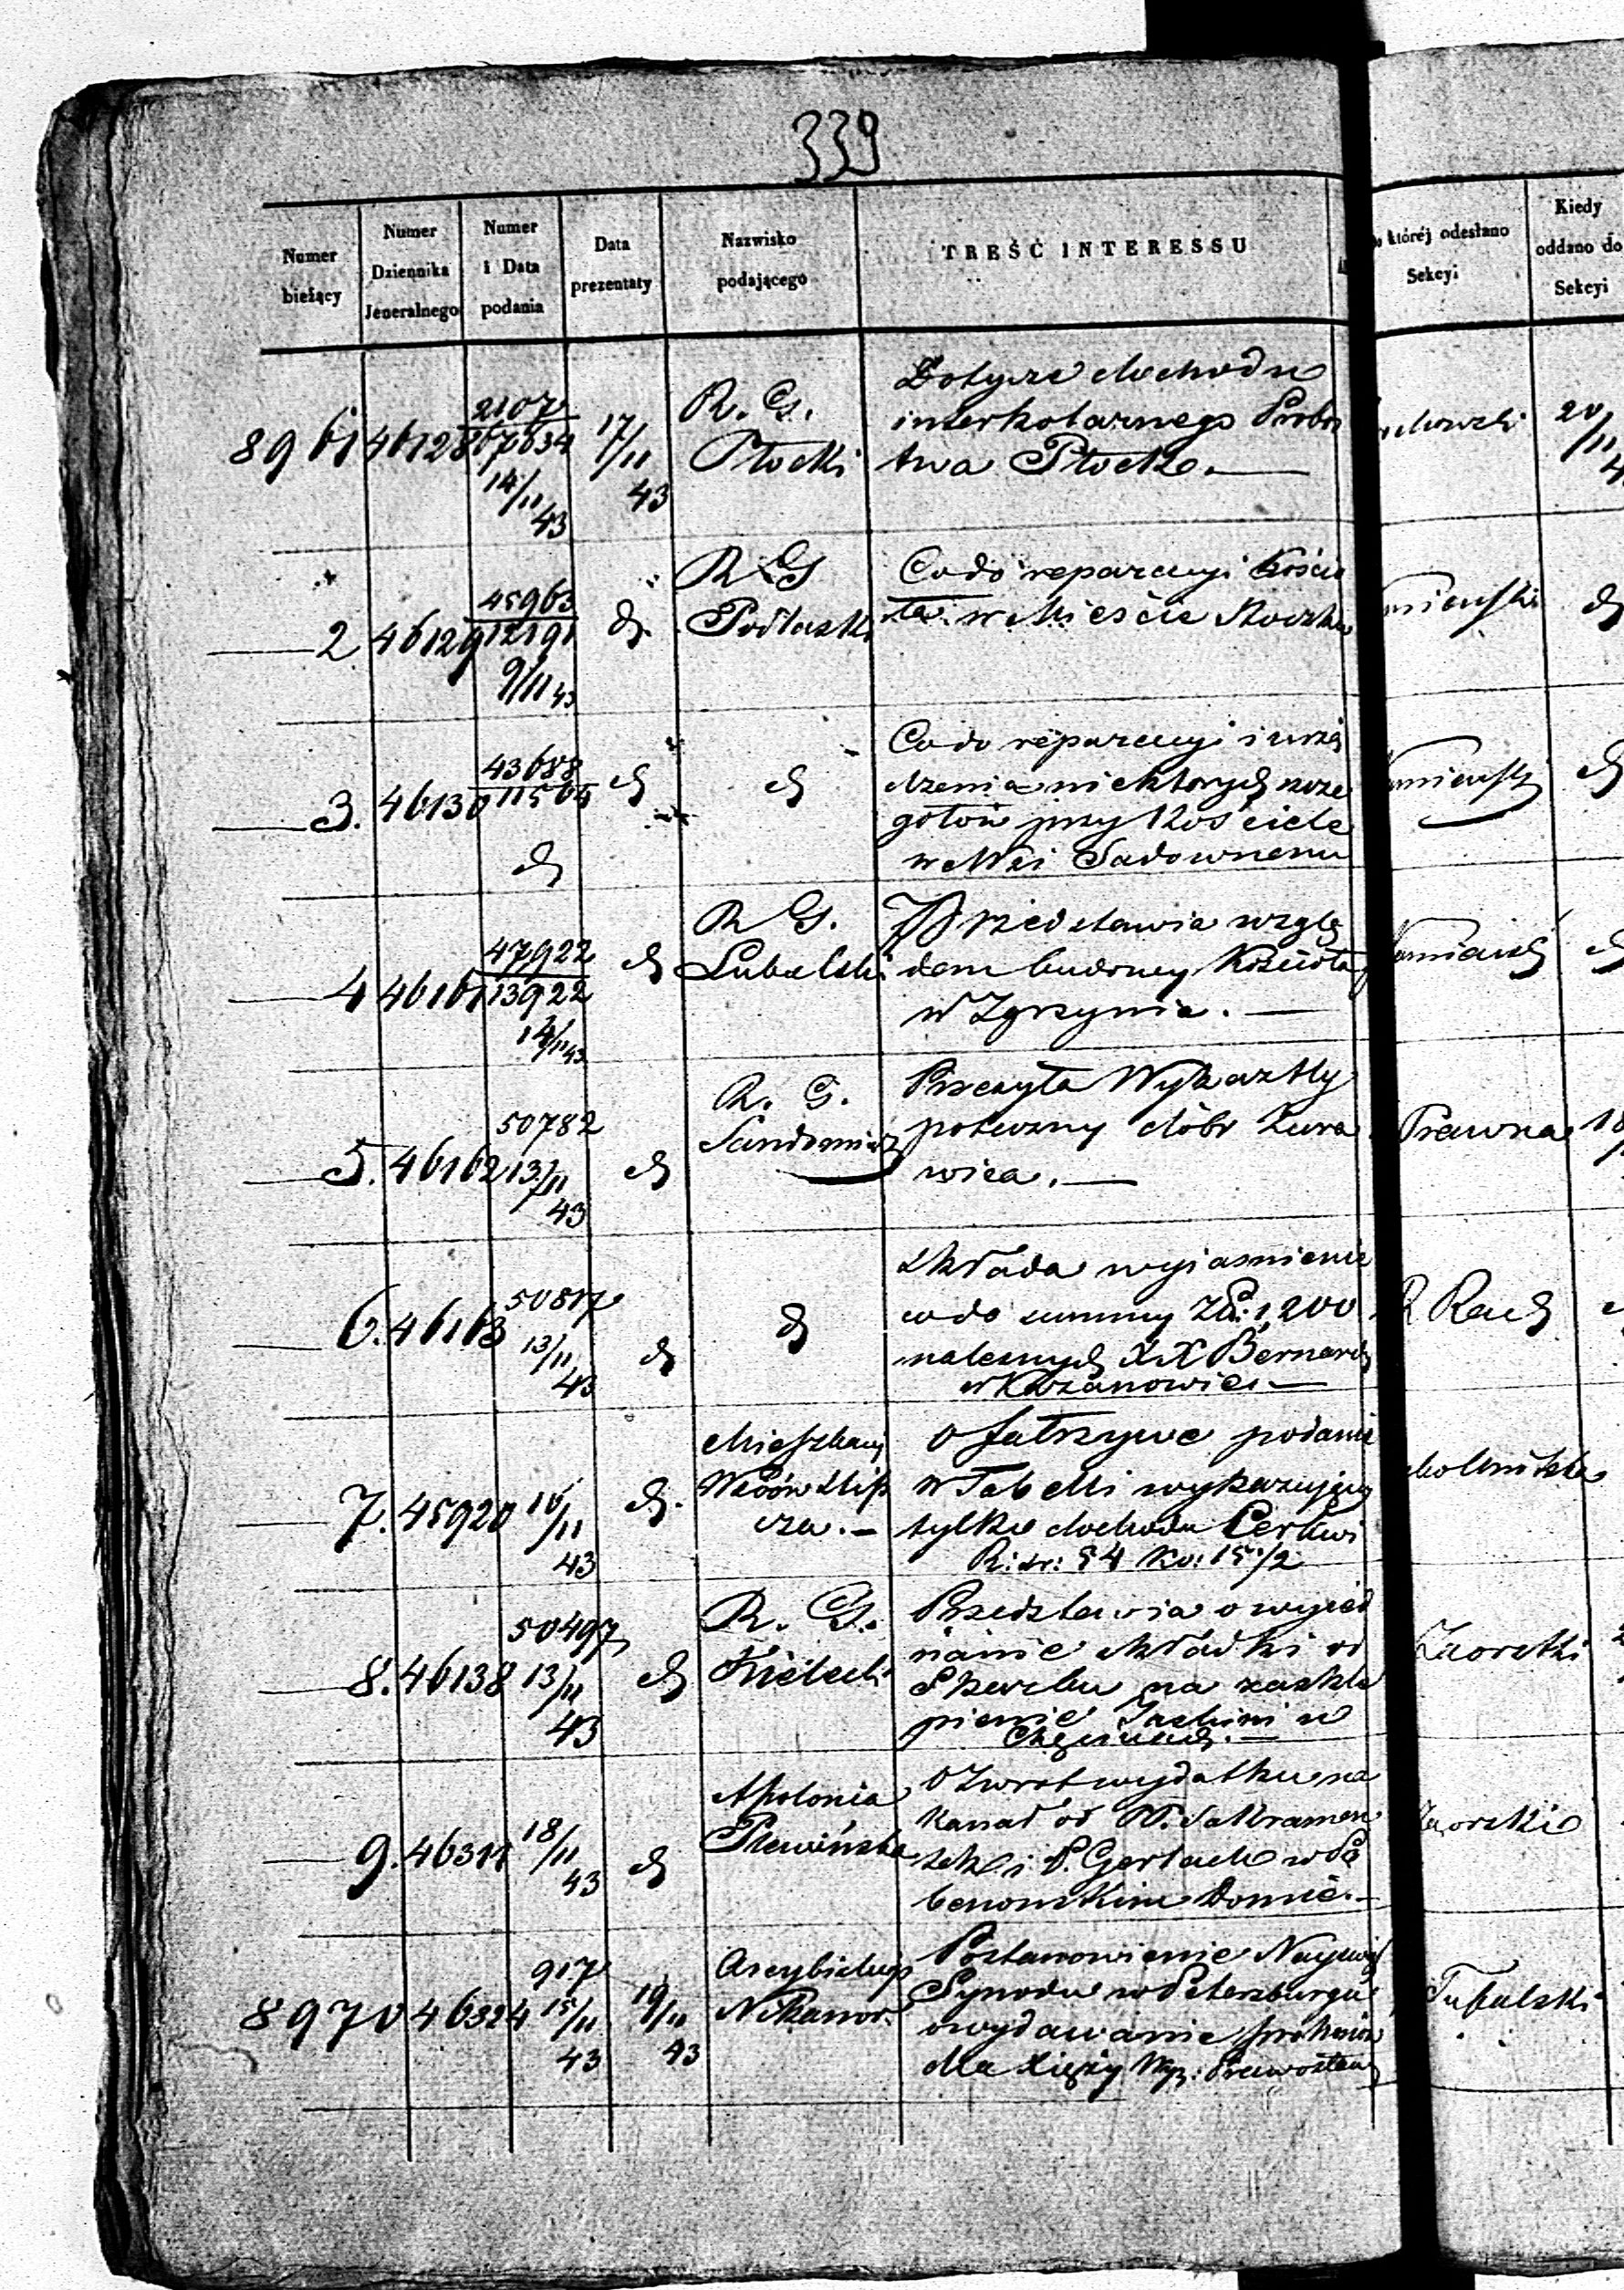 339
Numer bieżący
Numer Dziennika Jeneralnego
Numer i Data podania
Data prezentaty
Nazwisko podającego
TREŚĆ INTERESSU
której odesłano Sekcyi
Kiedy oddano do Sekcyi
8961 46128 2107/67634 14/11 43 17/11 43
R. G.
Płocki
Dotycze dochodu
interkalarnego Probos
twa Płocke.
20/11
2 46129 45963/12191 9/11 43 d
R G
Podlaski
Co do reparacyi Kościo
ła w Mieście
d
3. 46130 43688/11564 d d
d
Co do reparacyi i urzą
dzenia niektorych szcze
gołów przy Kościele
we Wsi Sadownem
d
4 46161 47922/13922 14/11 43 d
R G.
Lubelski
Przedstawia wzglę
dem budowy Kościoła
w Zgrzynie.
d
5. 46162 50782 13/11 43 d
R. G.
Sandomier
Przesyła Wykaz Hy
poteczny dóbr Kura
wica.
Prawna 18
6. 46163 50817 13/11 43 d
d
składa wyjasnienie
co do summy Złp: 1,200
należnych XX Bernard
w Kazanowie.
R Rach
7. 45920 16/11 43 d.
Mieszkańcy
o fałszywe podanie
w Tabelli wykazującej
tylko dochodu Cerkwi
R: sr: 54 Ko: 15 1/2
8. 46138 50497 13/11 43 d
R. G.
Kielecki
Przedstawia o wyjed
nanie składki od
Skarbu na zaskle
pienie Jaskini w
Chęcinach.
Zaorski
9. 46311 18/11 43 d
Apolonia
Plewińska
O Zwrot wydatku na
kanał od PP. Sakramen
tek i P. Gerlach w Sa
benowskim Domie.
Zaorski
8970 46324 917 15/11 43 19/11 43
Arcybiskup
Nikanor.
Postanowienie Najwyż
Synodu w Petersburgu
o wydawanie
dla Księży Wyz: Prawosław